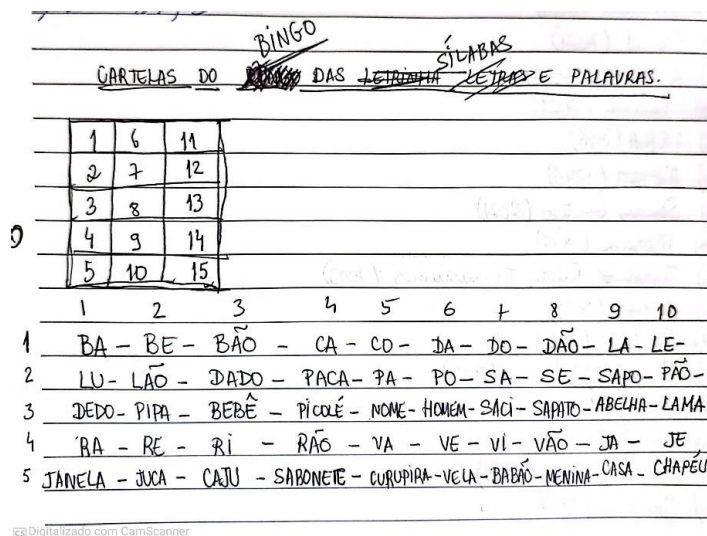 BINGO
SÍLABAS
CARTELAS DO DAS LETRINHA LETRAS E PALAVRAS.
1 6 11
2 7 12
3 8 13
4 9 14
5 10 15
1 2 3 4 5 6 7 8 9 10
1 BA - BE - BÃO - CA - CO - DA - DO - DÃO - LA - LE-
2 LU - LÃO - DADO - PACA - PA - PO - SA - SE - SAPO - PÃO-
3 DEDO - PIPA - BEBÊ - PICOLÉ - NOME - HOMEM - SACI - SAPATO - ABELHA - LAMA
4 RA - RE - RI - RÃO - VA - VE - VI - VÃO - JA - JE
5 JANELA - JUCA - CAJU - SABONETE - CURUPIRA - VELA - BABÃO - MENINA - CASA - CHAPÉU
CS Digitalizado com CamScanner